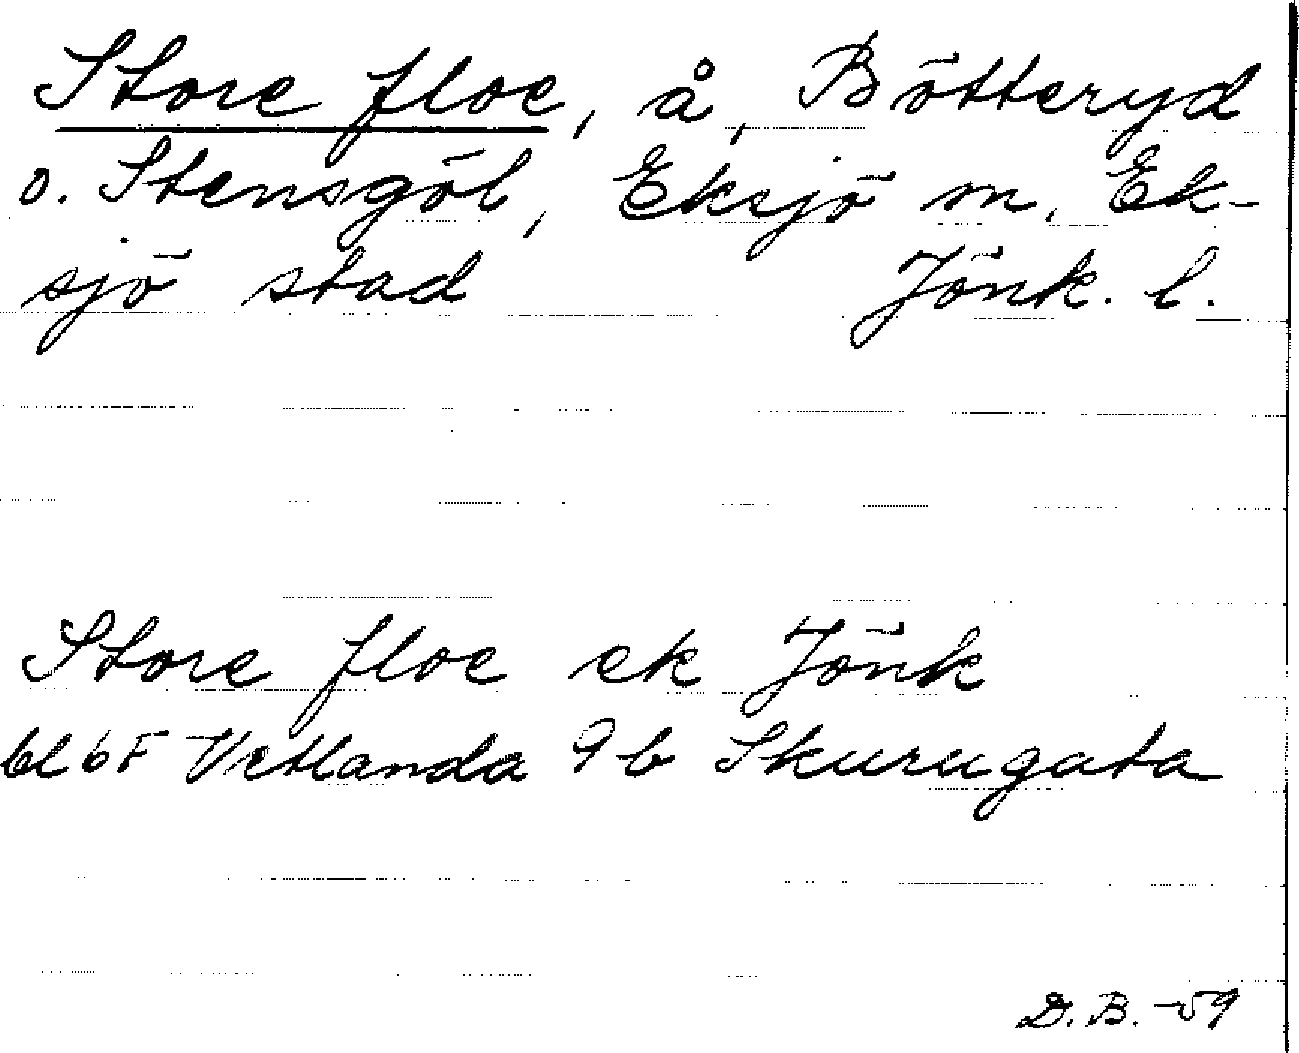 Store floe, å, Bötteryd
o. Stensgöl, Eksjö m. Ek-
sjö stad Jönk. l.
Store floe ek Jönk
bl 6F Vetlanda 9b Skurugata
D.B. -59